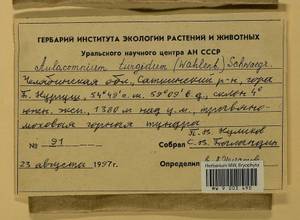 ГЕРБАРИЙ ИНСТИТУТА ЭКОЛОГИИ РАСТЕНИЙ И ЖИВОТНЫХ
Уральского научного центра АН СССР
Aulacomnium turgidum (Wahlenb.) Schwaegr.
Челябинская обл., Саткинский р-н, гора
Б. Нургуш, 54°49' с.ш. 59°09' в.д., склон 4°
южн. эксп., 1380 м над у.м., травяно-
моховая горная тундра
№ 91
П.В. Куликов
Собрал
23 августа 1997г.
Определил
Herbarium MW, Bryophyta